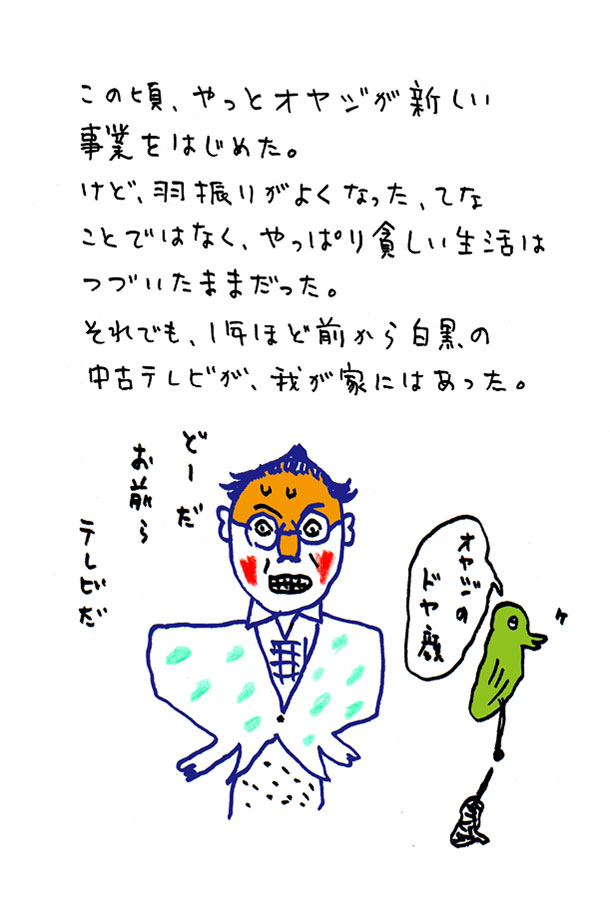 この頃、やっとオヤジが新しい
事業をはじめた。
けど、羽振りがよくなった、てな
ことではなく、やっぱり貧しい生活は
つづいたままだった。
それでも、1年ほど前から白黒の
中古テレビが、我が家にはあった。
どーだ
お前ら
テレビだ
オヤジの
ドヤ顔
ケ